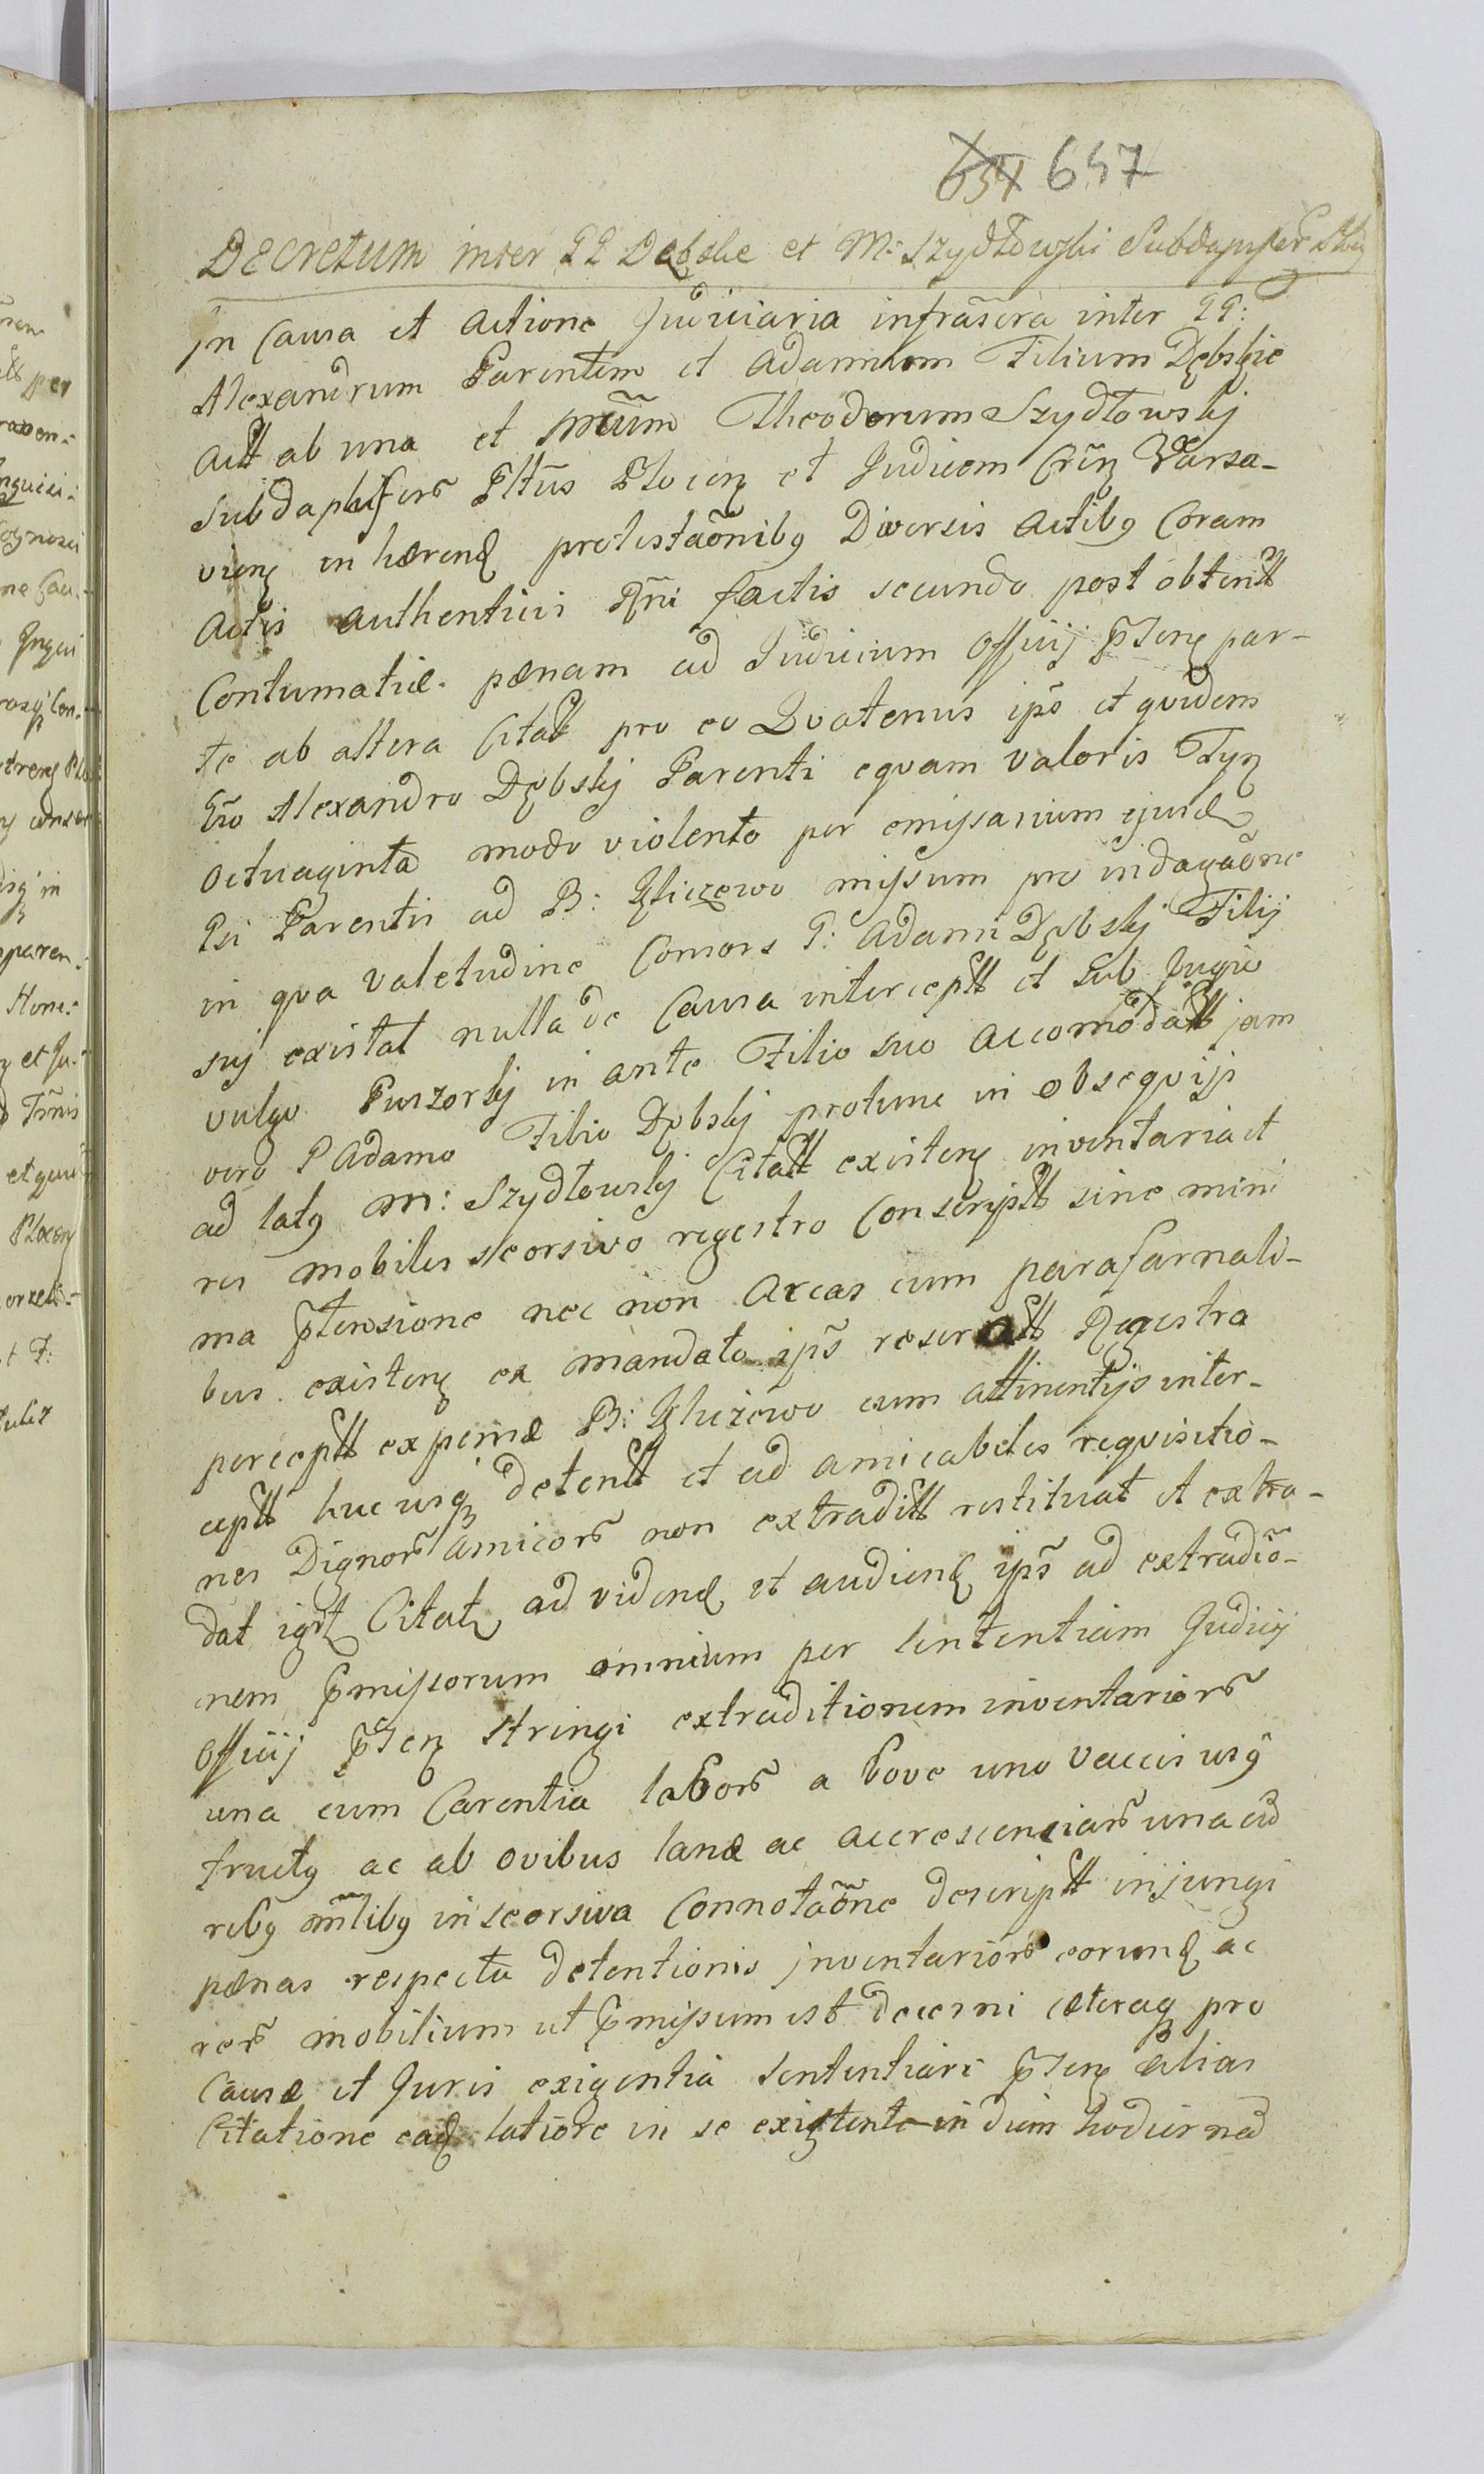 654 657
Decretum inter PP Dębskie et M: Szydłowski Subdapiferũ
Jn Causa et Actione Judiciaria infrãscra inter PP:
Alexandrum Parentem et Adamum Filium Dębskie
Actt ab una et Mcũm Theodorum Szydłowskj
Subdapiferũ Pltũs Plocen et Judicem Crĩn Varsa-
vien in hærend protestaõnibg Diversis Actibg Coram
Actis Authentici Rñi factis secundo post obtentt
Contumatiæ pænam ad Judicium Officij Pñsens par-
te ab altera Citatt pro eo Quatenus ipse et quidem
Gro Alexandro Dębskj Parenti equam valoris Tyn
Octuaginta modo violento per emissarium ejusd
Psi Parentis ad B: Gliczewo missum pro indagaõne
in qva valetudine Consors P: Adami Dębskj Filij
sui existat nulla de Causa interceptt et Sub Jugio
vulgo Puszorkj in ante Filio suo Accomodatt jam
vero P Adamo Filio Dębskj protunc in obseqvijs
ad latg M: Szydłowskj Citatt existens inventaria et
res mobiles seorsivo regestro Conscriptt sine mini
ma Ptensione nec non Arcas cum parafarnali-
bus existens ex mandato ips reseratt Regestra
perceptt expensæ B: Gliczewo cum attinentijs inter-
ceptt huc usq detentt et ad amicabiles reqvisitio-
nes Dignorũ Amicorũ non extraditt restituat et extra-
dat igt Citatg ad vidend et audiend ips ad extraditio-
nem Pmissorum omnium per Sententiam Judicij
Officij Psens stringi extraditionem inventariorũ
una cum Carentia laborũ a bove uno Vaccis usg
fructg ac ab ovibus lanæ ac accrescenciarũ una cũ
rebg mlibg in seorsiva Connotaõne descriptt injungi
pænas respectu detentionis inventariorũ eorund ac
rerũ mobilium ut Pmissum est decerni cæteraq pro
Causæ et Juris exigentia Sententiari Psens alias
Citatione ead latiore in se existente in diem hodiernã